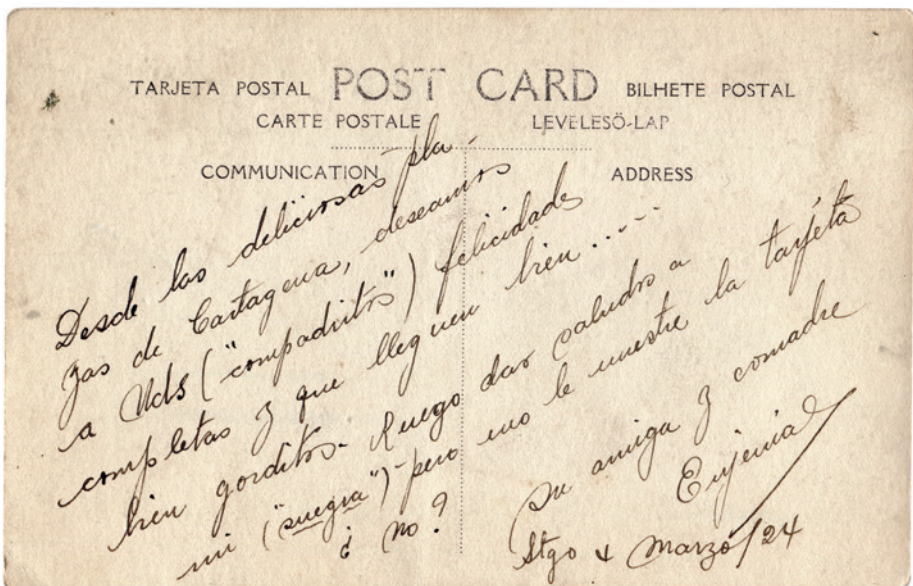 TARJETA POSTAL POST CARD BILHETE POSTAL
CARTE POSTALE LEVELESÖ-LAP
COMMUNICATION ADDRESS
Desde las deliciosas pla-
yas de Cartagena, deseamos
a Uds ("compadritos") felicidades
completas y que lleguen bien.....
bien gorditos- Ruego dar saludos a
mi ("suegra")-pero no le muestre la tarjeta
¿ no?
su amiga y comadre
Eujenia
Stgo 4 Marzo/24